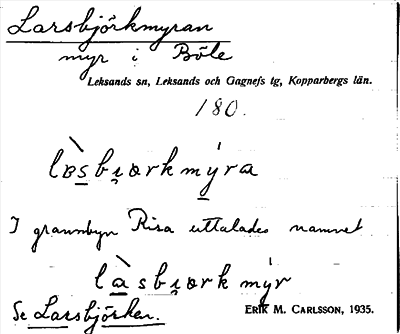 Larsbjörkmyran
myr i Böle
Leksands sn, Leksands och Gagnefs tg, Kopparbergs län.
180.
là̱sbi̯ɶrkmý̱ra
I grannbyn Risa uttalades namnet
là̱sbi̯ɶrkmýr
Se Larsbjörken.
ERIK M. CARLSSON, 1935.